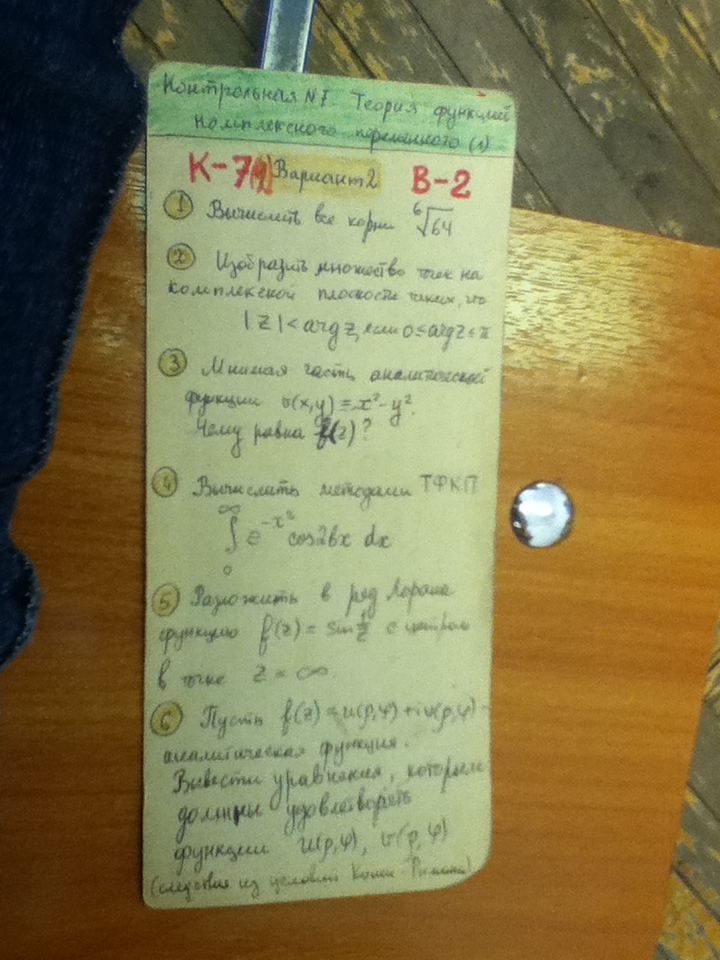 Контрольная N7. Теория функций
комплексного переменного (1)
К-7(1) Вариант 2 В-2
1 Вычислить все корни ⁶√64
2 Изобразить множество точек на
комплексной плоскости таких, что
|z| < arg z, если 0 ≤ arg z ≤ π
3 Мнимая часть аналитической
функции v(x,y) = x² - y².
Чему равна f(z)?
4 Вычислить методами ТФКП
∫₀^∞ e^(-x²) cos2bx dx
5 Разложить в ряд Лорана
функцию f(z) = sin 1/z с центром
в точке z = ∞.
6 Пусть f(z) = u(ρ,φ) + iv(ρ,φ) -
аналитическая функция.
Вывести уравнения, которым
должны удовлетворять
функции u(ρ,φ), v(ρ,φ)
(следствия из условий Коши-Римана)